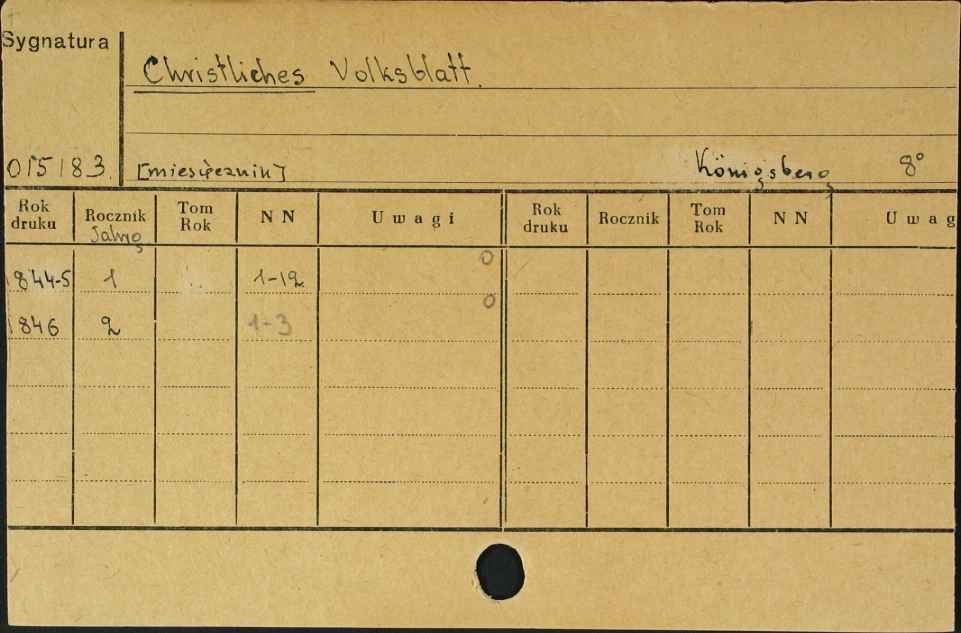 Sygnatura
Christliches Volksblatt.
015183. [miesięcznik] Königsberg 8°
Rok druku Rocznik Tom Rok N N Uwagi Rok druku Rocznik Tom Rok N N Uwag
Jahrg
1844-5 1 1-12 0
0
1846 2 1-3